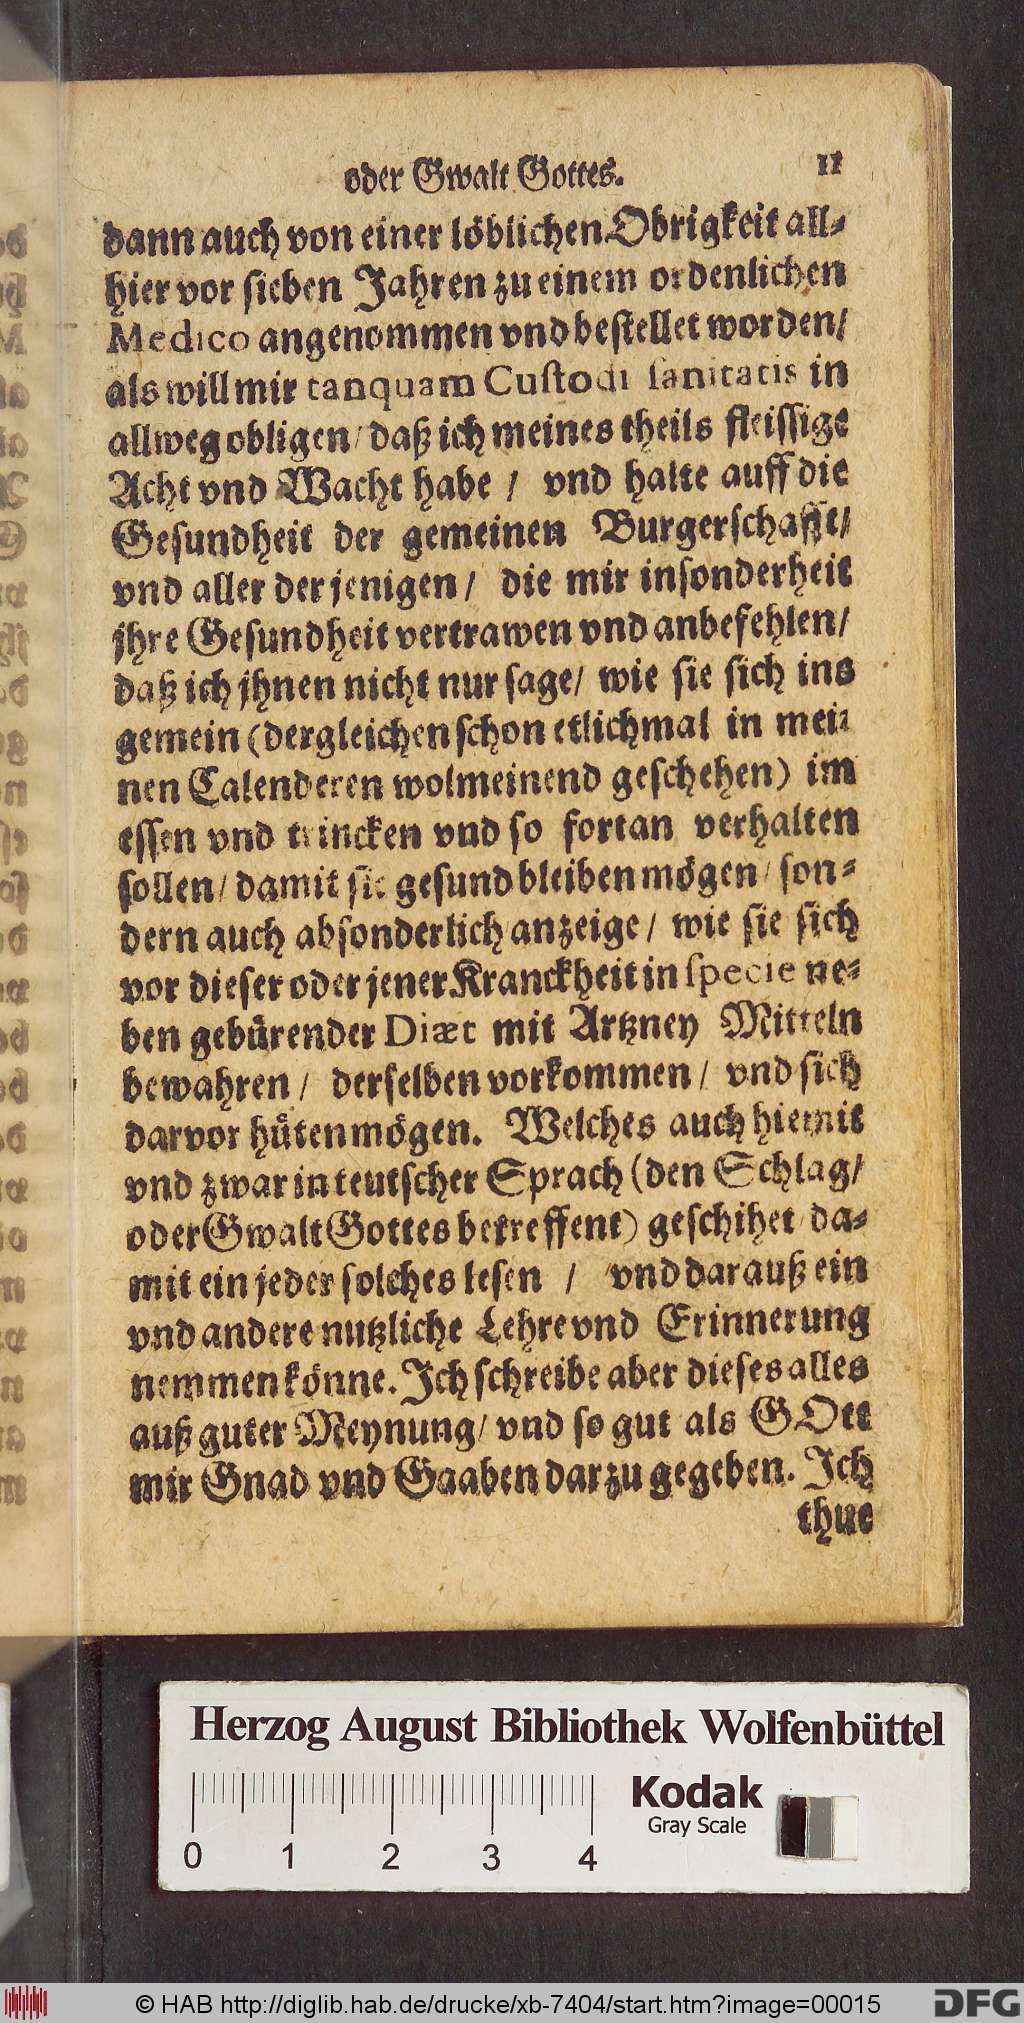 oder Gwalt Gottes. 11
dann auch von einer löblichen Obrigkeit all-
hier vor sieben Jahren zu einem ordenlichen
Medico angenommen vnd bestellet worden/
als will mir tanquam Custodi sanitatis in
allweg obligen/ daß ich meines theils fleissige
Acht vnd Wacht habe / vnd halte auff die
Gesundheit der gemeinen Burgerschafft/
vnd aller der jenigen/ die mir insonderheit
jhre Gesundheit vertrawen vnd anbefehlen/
daß ich jhnen nicht nur sage/ wie sie sich ins
gemein (dergleichen schon etlichmal in mei-
nen Calenderen wolmeinend geschehen) im
essen vnd trincken vnd so fortan verhalten
sollen/ damit sie gesund bleiben mögen/ son-
dern auch absonderlich anzeige/ wie sie sich
vor dieser oder jener Kranckheit in specie ne-
ben gebürender Diæt mit Artzney Mitteln
bewahren/ derselben vorkommen/ vnd sich
darvor hüten mögen. Welches auch hiemit
vnd zwar in teutscher Sprach (den Schlag/
oder Gwalt Gottes betreffent) geschihet/ da-
mit ein jeder solches lesen / vnd darauß ein
vnd andere nutzliche Lehre vnd Erinnerung
nemmen könne. Ich schreibe aber dieses alles
auß guter Meynung/ vnd so gut als GOtt
mir Gnad vnd Gaaben darzu gegeben. Ich
thue
Herzog August Bibliothek Wolfenbüttel
Kodak
Gray Scale
0 1 2 3 4
© HAB http://diglib.hab.de/drucke/xb-7404/start.htm?image=00015
DFG